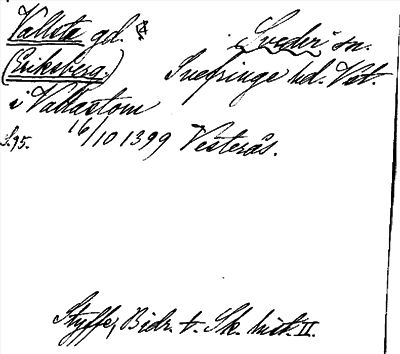 Vallste gd. Svedvi sn.
(Eriksberg.) Snefringe hd. Vst.
i Vallastom
S. 95. 16/10 1399 Vesterås.
Styffe, Bidr. t. Sk. hist. II.